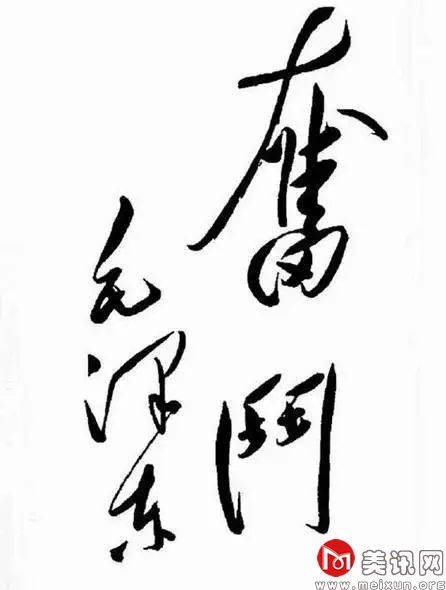 奮鬥
毛澤东
美讯网
www.meixun.org